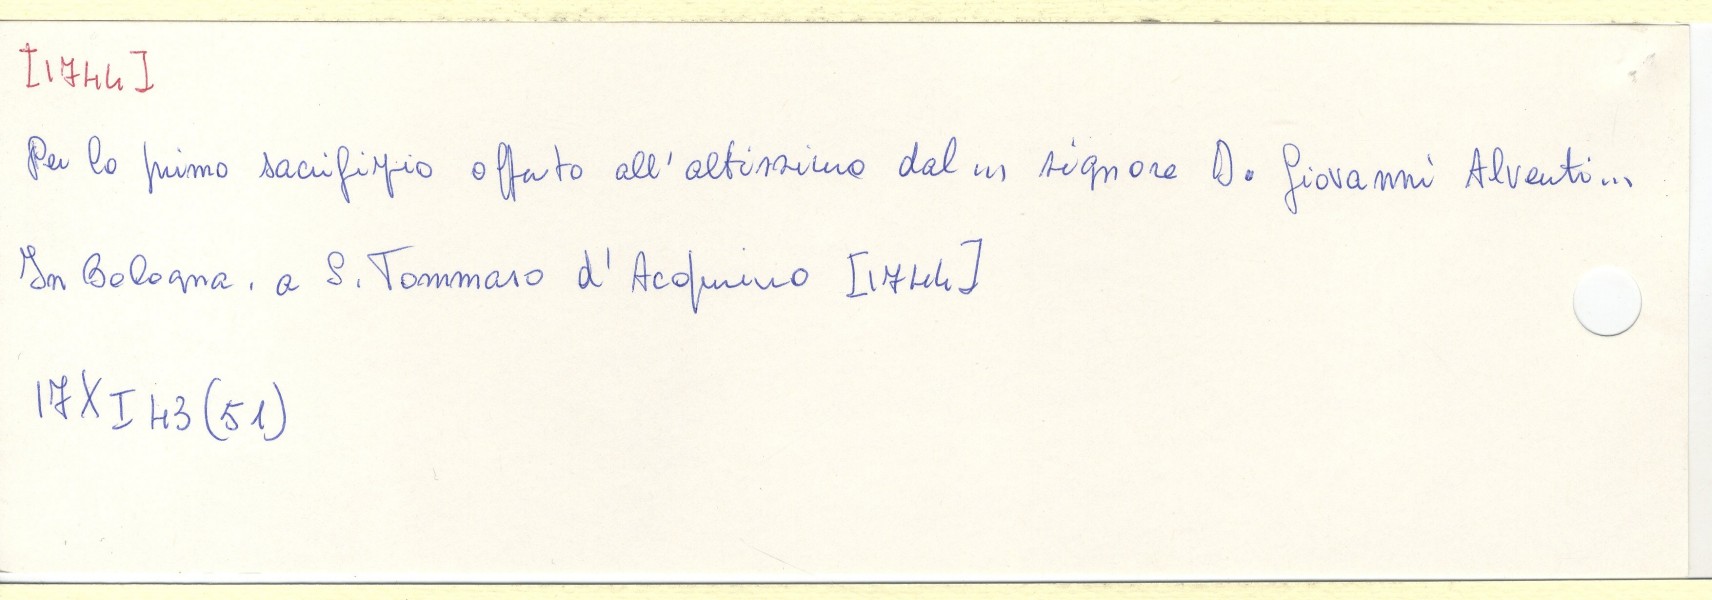 [1744]
Per lo primo sacrifizio offerto all'altissimo dal m signore D. Giovanni Alventi...
In Bologna, a S. Tommaso d'Acquino [1744]
17X I 43 (51)